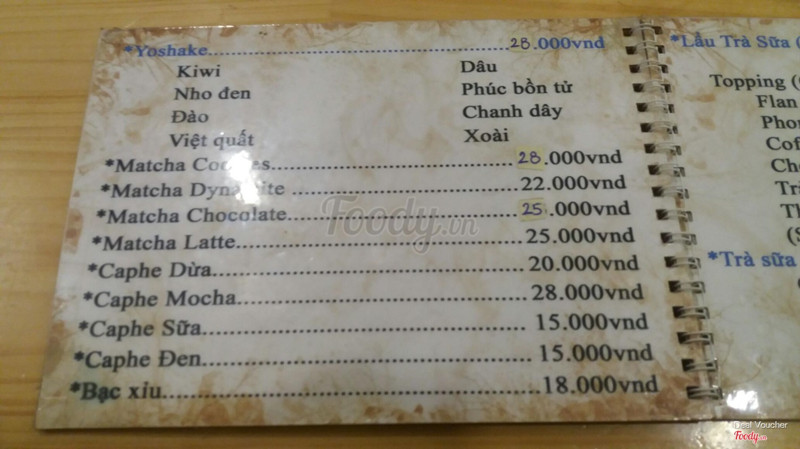 *Yoshake..........28.000vnd
Kiwi Dâu
Nho đen Phúc bồn tử
Đào Chanh dây
Việt quất Xoài
*Matcha Cookies..........28.000vnd
*Matcha Dynamite ..........22.000vnd
*Matcha Chocolate..........25.000vnd
*Matcha Latte..........25.000vnd
*Caphe Dừa..........20.000vnd
*Caphe Mocha..........28.000vnd
*Caphe Sữa..........15.000vnd
*Caphe Đen..........15.000vnd
*Bạc xỉu..........18.000vnd
*Lẩu Trà Sữa (
Topping (
Flan
*Trà sữa
Foody.vn
Foody.vn